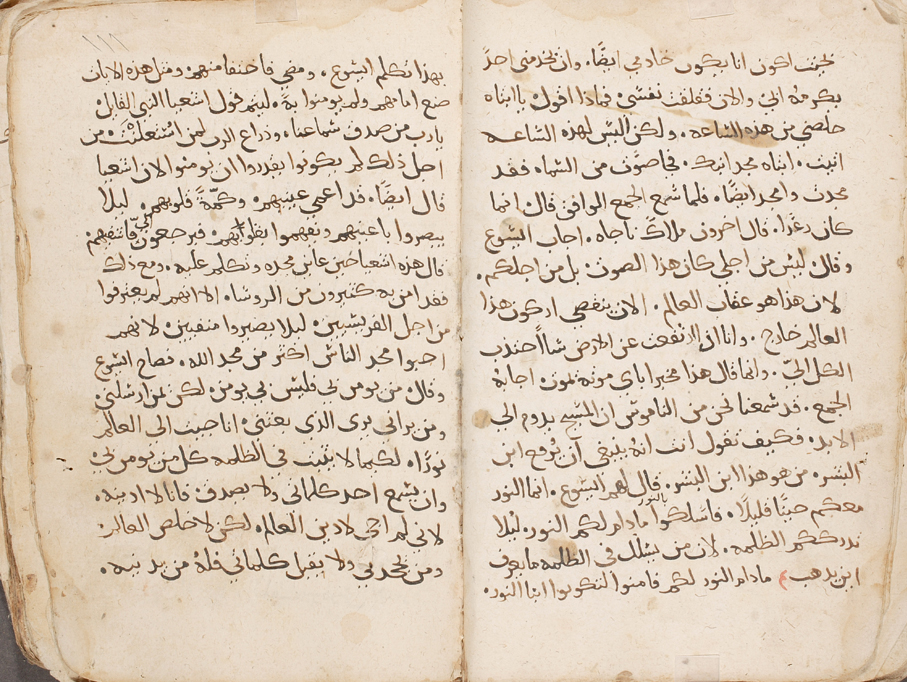 بحيث اكون انا يكون خادمي ايضًا. وان يخدمني احدًا
يكرمه ابي والان فقلقت نفسي فماذا اقول يا ابتاه
خلصني من هذه الساعه. ولكن اليس لهذه الساعه
اتيت. ابتاه مجد ابنك. فجا صوت من السماء فقد
مجدت وامجد ايضًا. فلما سمع الجمع الواقف قال انما
كان رعدًا. قال اخرون ملاك ناجاه. اجاب ايسوع
وقال ليس من اجلي كان هذا الصوت بل من اجلكم.
لان هذا هو عقاب العالم. الان ينقصي اركون هذا
العالم خارج. وانا ان ارتفعت عن الارض شيا اجتذب
الكل اليّ. وانما قال هذا مخبرا باي موته يموت اجابه
الجمع. قد سمعنا نحن من الناموس ان المسيح يدوم الى
الابد. وكيف تقول انت انه ينبغي ان يُرفع ابن
البشر. من هو هذا ابن البشر. قال لهم ايسوع. انما النور
معكم حينًا قليلًا. فاسلكوا مادام لكم النور ليلا
تدرككم الظلمه. لان من يسلك في الظلمه ما يعرف
اين يدهب مادام النور لكم فامنوا لتكونوا ابنا النور.
١١١
بهذا تكلم ايسوع. ومضي فاختفا منهم ومثل هذه الايات
صنع امامهم ولم يومنوا به. ليتم قول اشعيا النبي القايل
يا رب من صدق سماعنا. وذراع الرب لمن استعلنت من
اجل ذلك لم يكونوا يقدروا ان يومنوا لان اشعيا
قال ايضًا. قد اعمى عينيهم. وكمّهَ قلوبهم. ليلا
يبصروا باعينهم وتفهموا بقلوبهم فيرجعون الي فاشفيهم
قال هذه اشعيا حين عاين مجده وتكلم عليه. ومع ذلك
فقد امن به كثيرون من الروسا. الا انهم لم يعترفوا
من اجل الفريسيين ليلا يصيروا منفيين لانهم
احبوا مجد الناس اكثر من مجد الله. فصاح ايسوع
وقال من يومن بي فليس بي يومن لكن لمن ارسلني
ومن يراني يرى الذي بعثني انا جيت الى العالم
نورًا. لكيما لا يثبت في الظلمه كل من يومن بي
وان يسمع احد كلماتي ولا يصدق فانا لا ادينه.
لاني لم اجي لادين العالم. لكن لاخلص العالم
ومن يجحدني ولا يقبل كلماتي فله من يدينه.